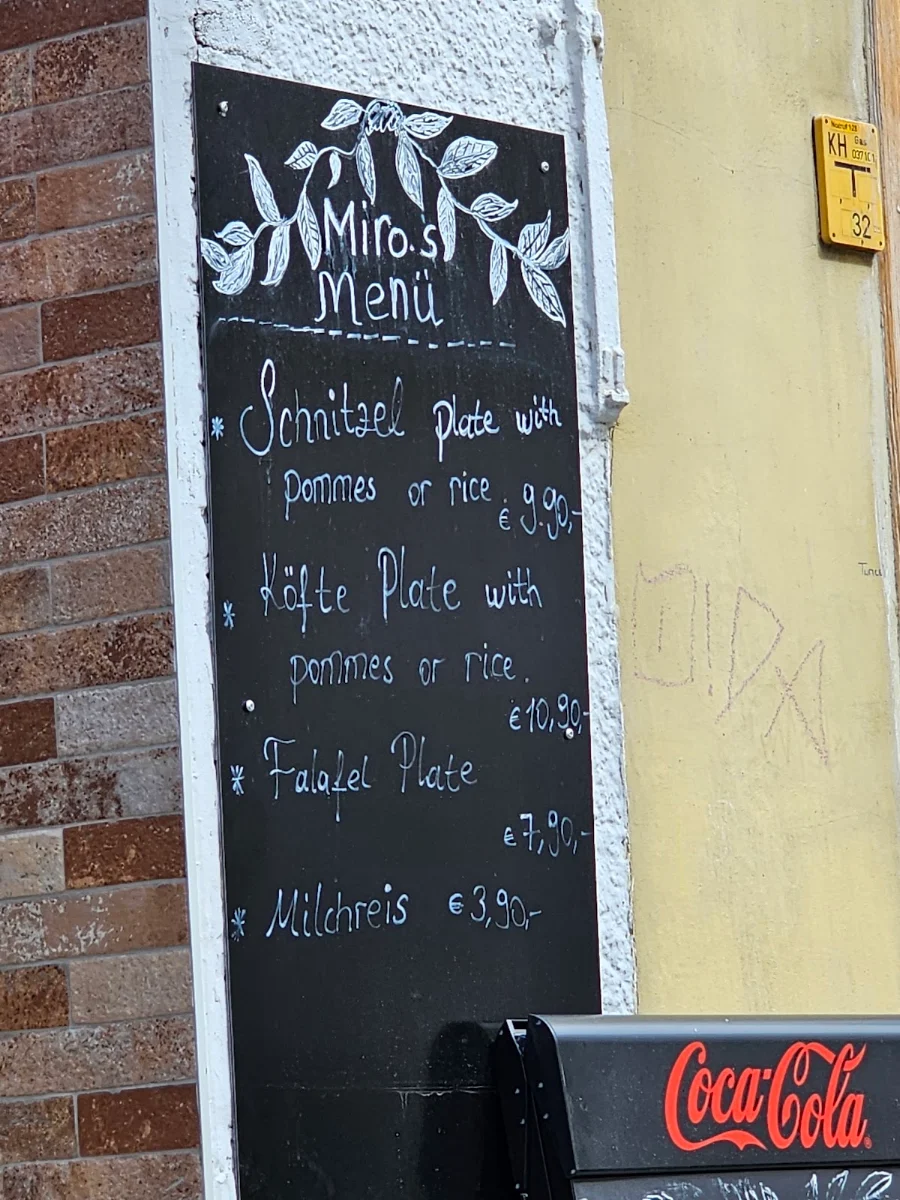 Miro.s
Menü
* Schnitzel Plate with
pommes or rice
€ 9.90,-
* Köfte Plate with
pommes or rice.
€10,90,-
* Falafel Plate
€7,90,-
* Milchreis €3,90,-
Notruf 128
KH Gas
T
32
Coca-Cola